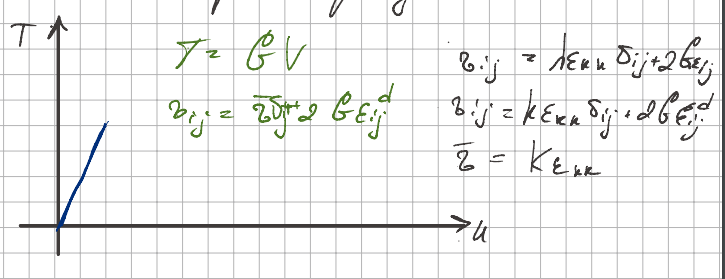 T
T = G V
τij = τ̄δij + 2 G εij^d
τij = λεkk δij + 2Gεij
τij = kεkk δij + 2Gεij^d
τ̄ = Kεkk
u